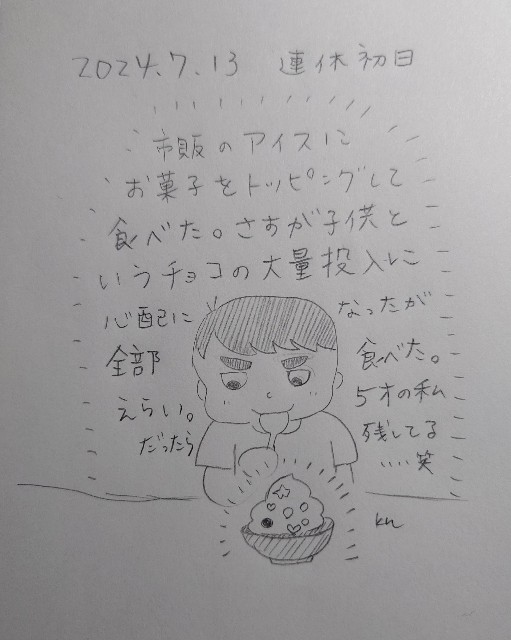 2024.7.13 連休初日
市販のアイスに
お菓子をトッピングして
食べた。さすが子供と
いうチョコの大量投入に
心配になったが
全部食べた。
えらい。5才の私
だったら残してる
‥‥笑
kn